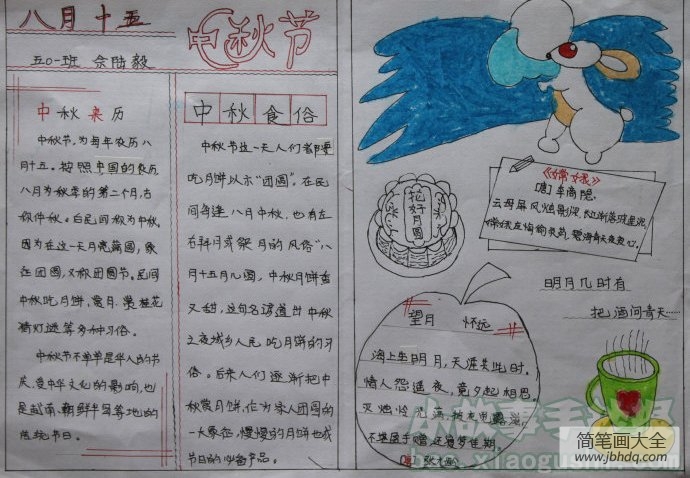 八月十五
中秋节
五〇一班 佘陆毅
中秋来历
中秋节，为每年农历八
月十五。按照中国的农历
八月为秋季的第二个月，古
称仲秋。
因为在这一天月亮满圆，象
征团圆，又称团圆节。民间
中秋吃月饼，赏月，赏桂花
猜灯谜等多种习俗。
中秋节不单单是华人的节
庆，受中华文化的影响，也
是越南、朝鲜半岛等地的
传统节日。
中秋食俗
中秋节这一天人们都要
吃月饼以示“团圆”。在民
间每逢八月中秋，也有左
右拜月或祭月的风俗“八
月十五月儿圆，中秋月饼香
又甜，这句名谚道出中秋
之夜城乡人民吃月饼的习
俗。后来人们逐渐把中
秋赏月饼，作为家人团圆的
一大象征，慢慢的月饼也成
节日的必备产品。
花好月圆
《嫦娥》
[唐]李商隐
云母屏风烛影深，长河渐落晓星沉
嫦娥应悔偷灵药，碧海青天夜夜心。
明月几时有
把酒问青天……
望月 怀远
海上生明月，天涯共此时。
情人怨遥夜，竟夕起相思。
灭烛怜光满，披衣觉露滋。
不堪盈手赠，还寝梦佳期。
张九龄
小故事手抄报
xiaogushi
简笔画大全
www.jbhdq.com